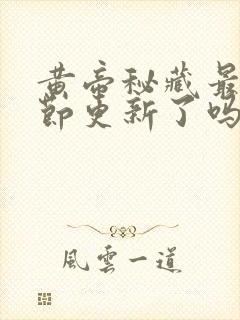 黄帝秘藏最
節更新了吗
風雲一道